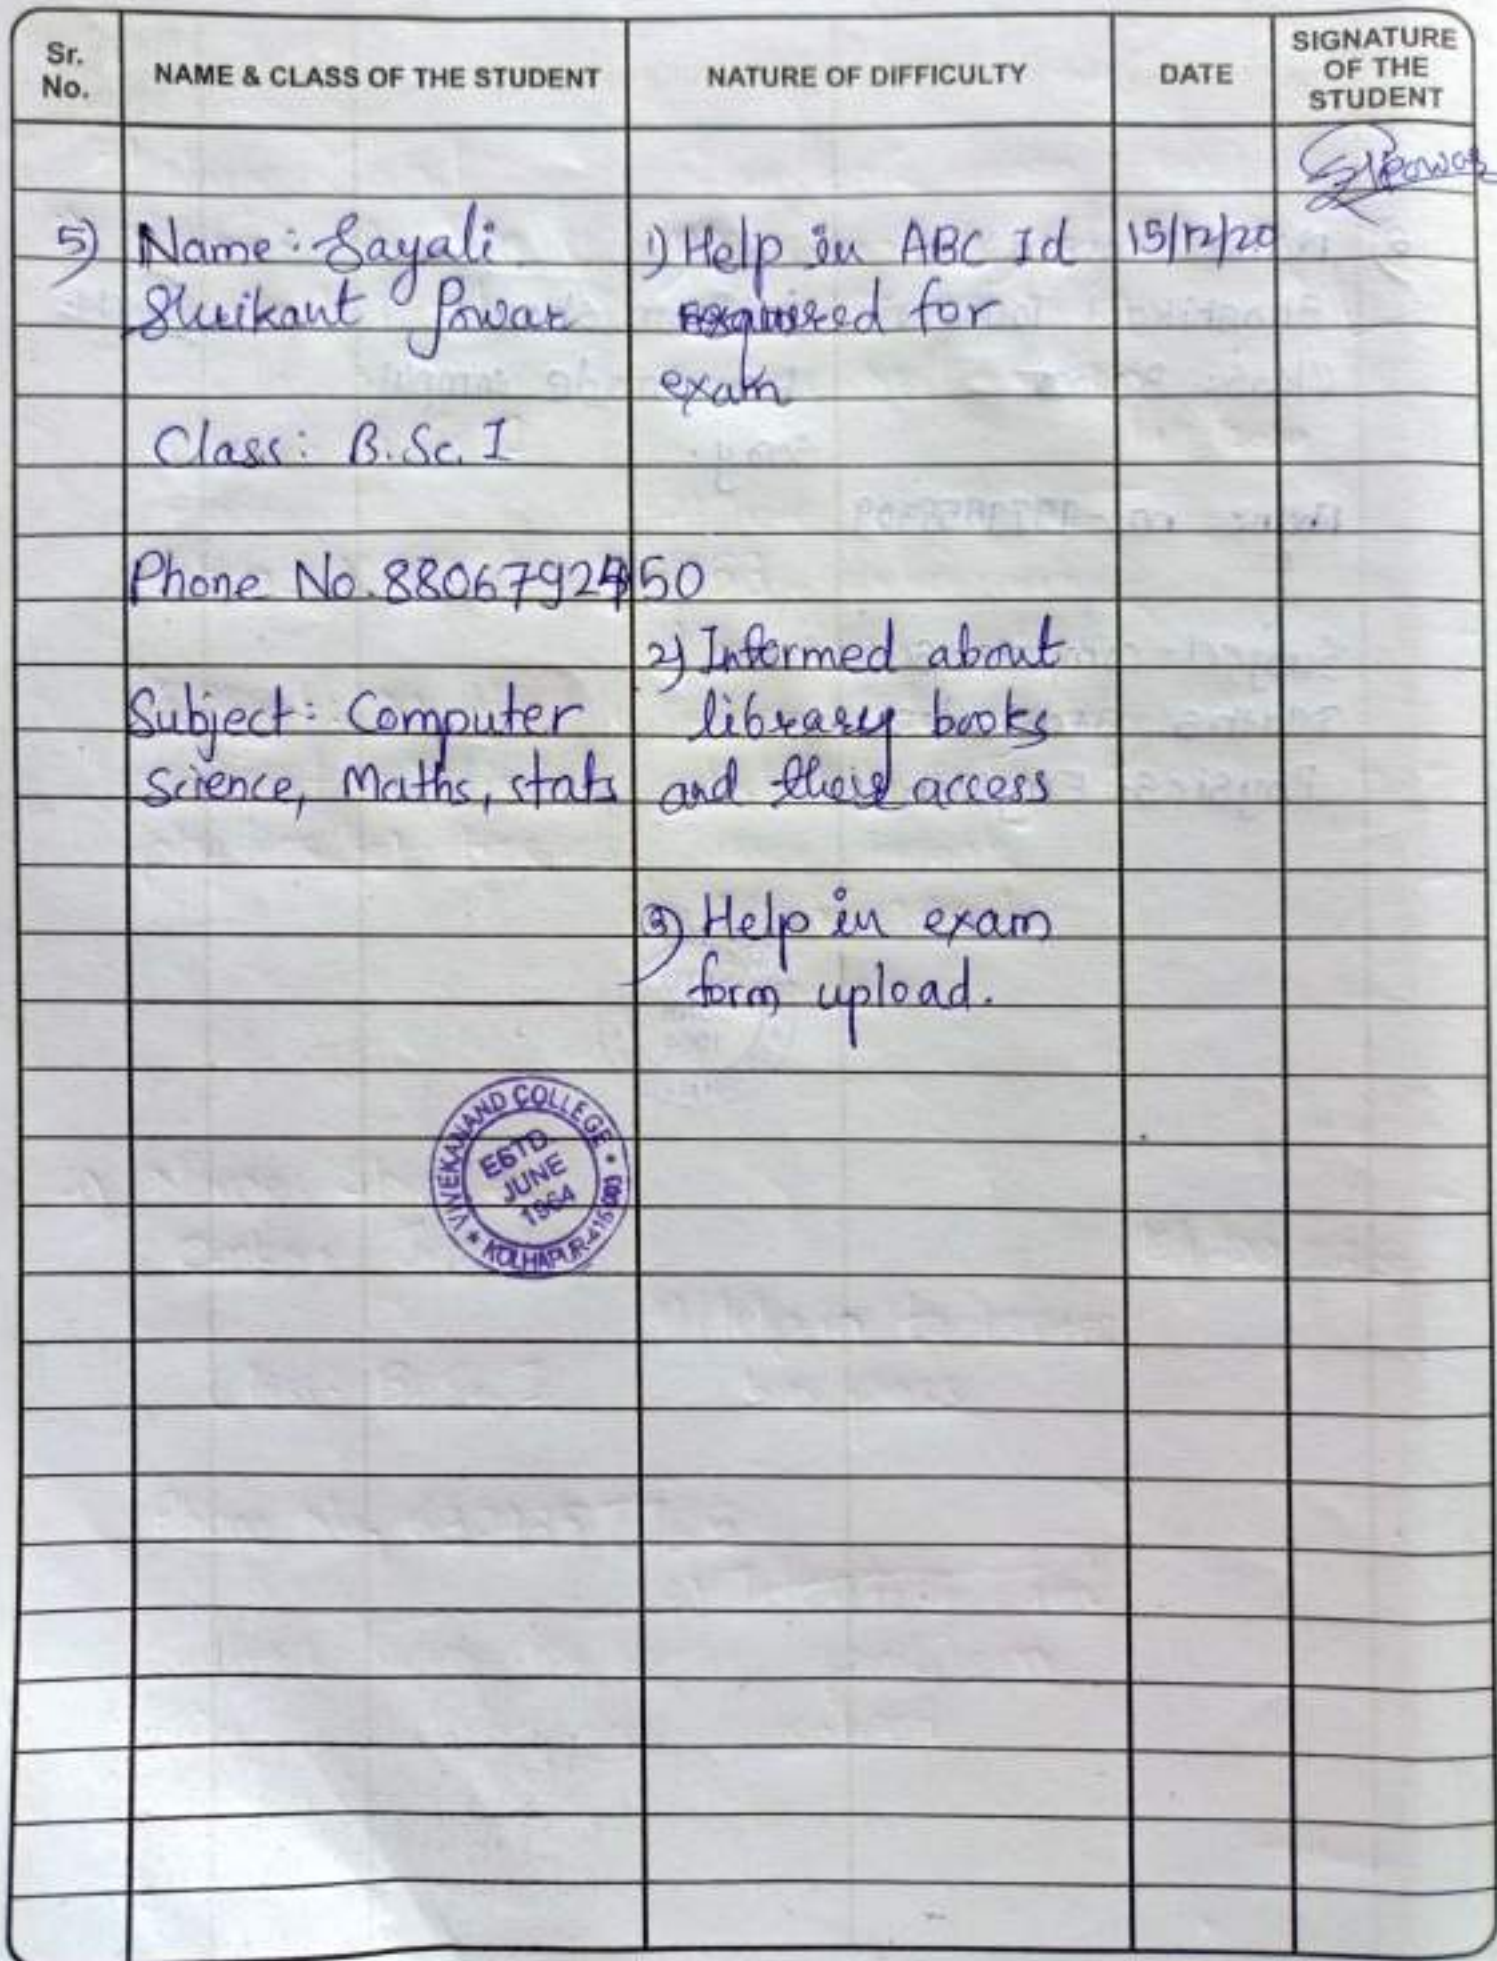 Sr. No.
NAME & CLASS OF THE STUDENT
NATURE OF DIFFICULTY
DATE
SIGNATURE OF THE STUDENT
5) Name: Sayali
Shrikant Powar
Class: B.Sc. I
Phone No.
Subject: Computer
Science, Maths, stats
1) Help in ABC Id
required for
exam
2) Informed about
library books
and their access
3) Help in exam
form upload.
15/12/20
VIVEKANAND COLLEGE
ESTD.
JUNE
1964
KOLHAPUR-416 003